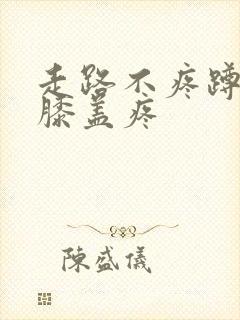 走路不疼蹲
膝盖疼
陳盛儀